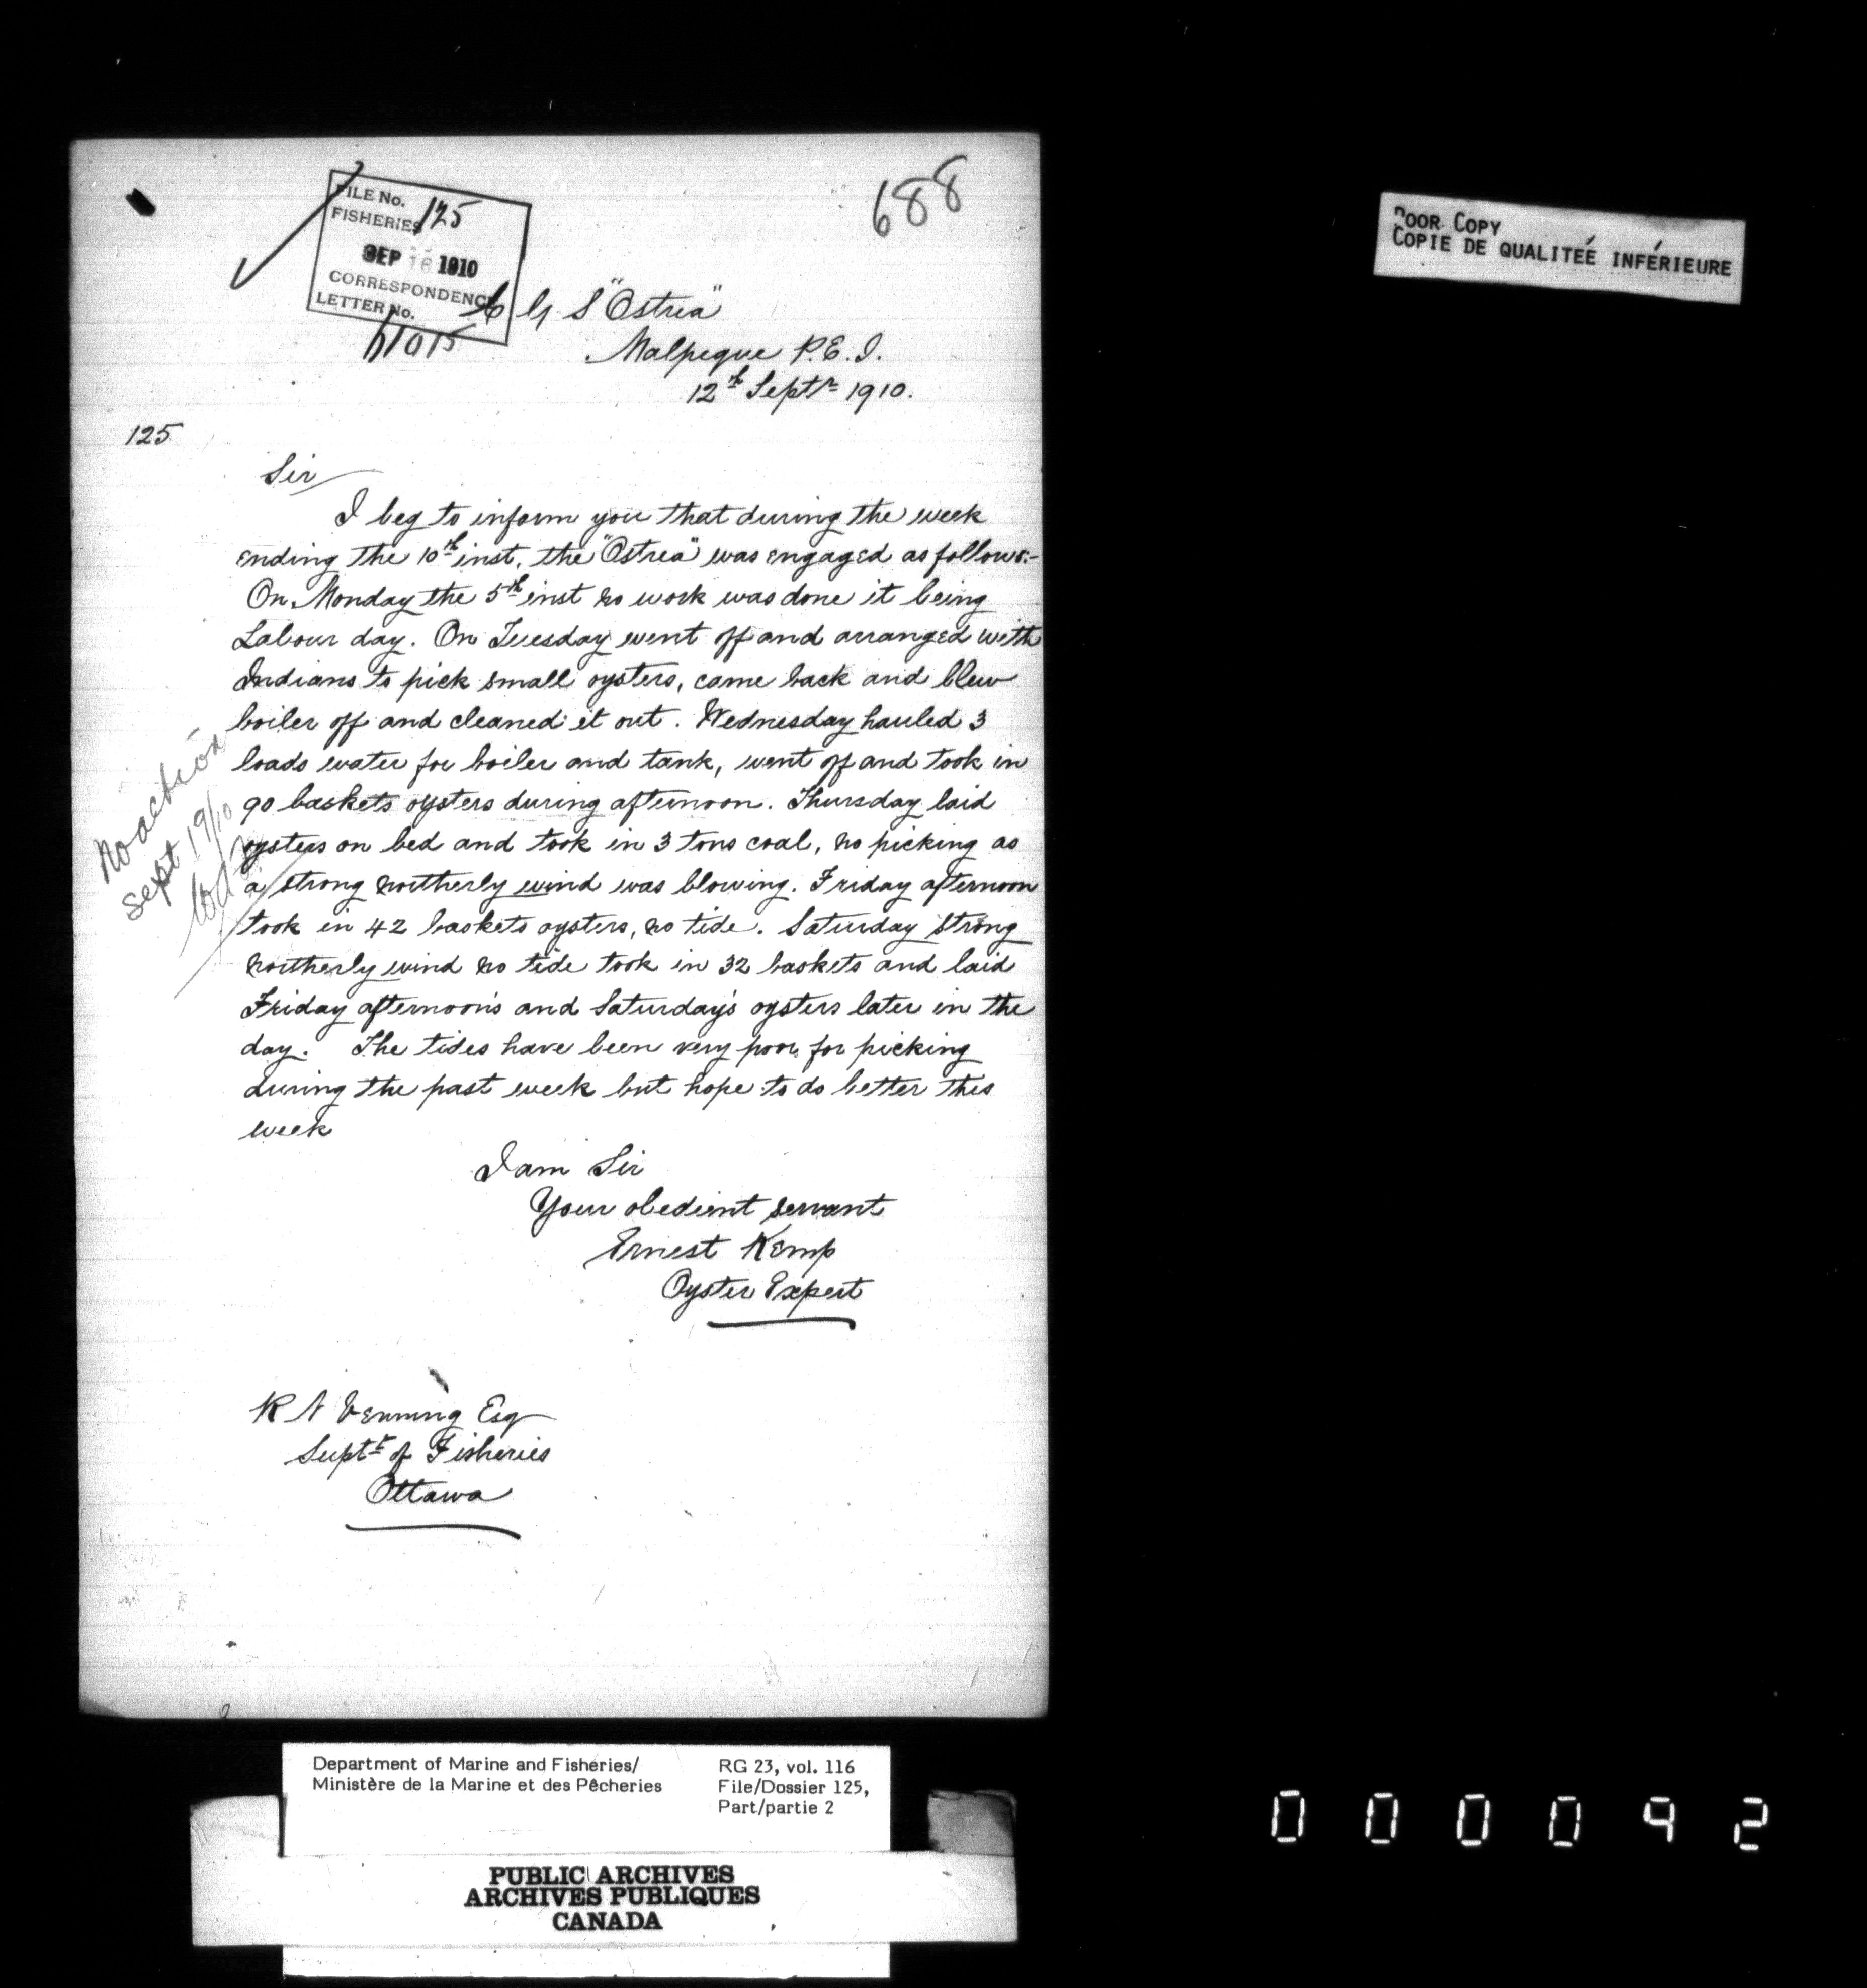 688
FILE No.
FISHERIES 125
SEP 16 1910
CORRESPONDENCE
LETTER No.
C G S "Ostrea"
Malpeque P.E.I.
12th Septr 1910.
125
Sir
I beg to inform you that during the week
ending the 10th inst, the "Ostrea" was engaged as follows:-
On Monday the 5th inst no work was done it being
Labour day. On Tuesday went off and arranged with
Indians to pick small oysters, came back and blew
boiler off and cleaned it out. Wednesday hauled 3
loads water for boiler and tank, went off and took in
90 baskets oysters during afternoon. Thursday laid
oysters on bed and took in 3 tons coal, no picking as
a strong northerly wind was blowing. Friday afternoon
took in 42 baskets oysters, no tide. Saturday strong
northerly wind no tide took in 32 baskets and laid
Friday afternoon's and Saturday's oysters later in the
day. The tides have been very poor for picking
during the past week but hope to do better this
week
No action
Sept 19/10
I am Sir
Your obedient servant
Ernest Kemp
Oyster Expert
R N Venning Esq
Supt of Fisheries
Ottawa
POOR COPY
COPIE DE QUALITEÉ INFÉRIEURE
Department of Marine and Fisheries/
Ministère de la Marine et des Pêcheries
RG 23, vol. 116
File/Dossier 125,
Part/partie 2
PUBLIC ARCHIVES
ARCHIVES PUBLIQUES
CANADA
000092